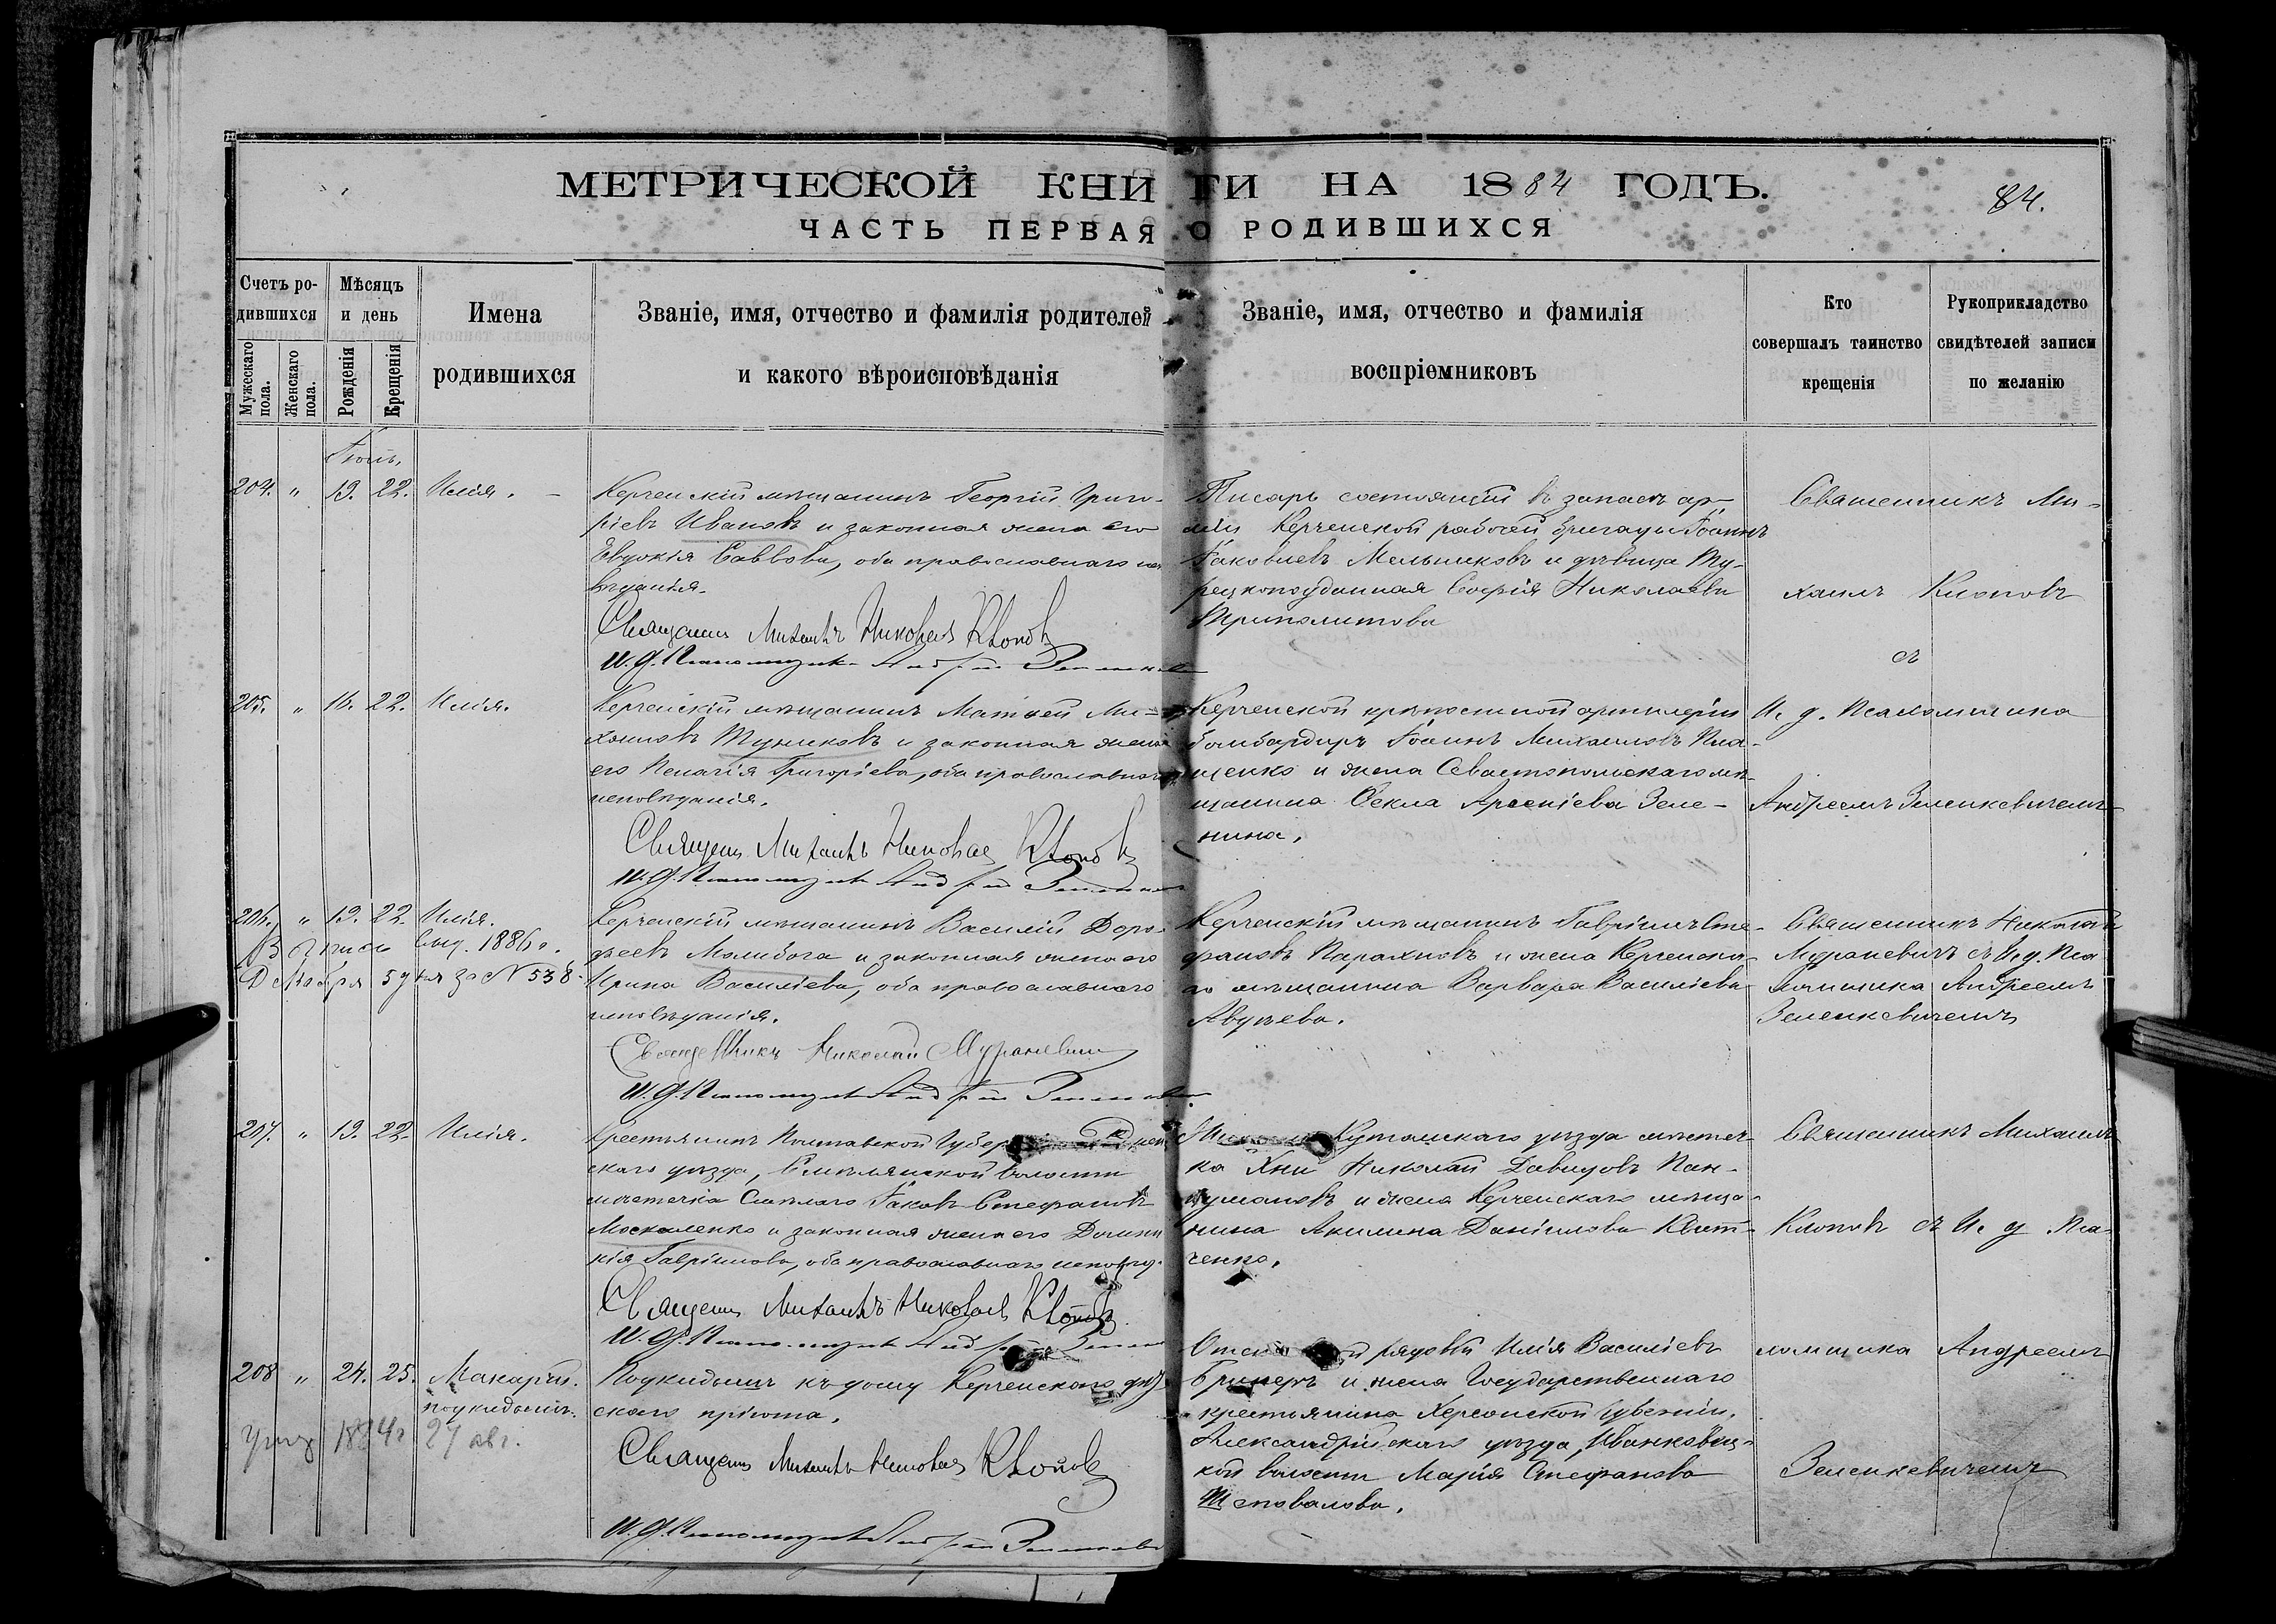 МЕТРИЧЕСКОЙ КНИГИ НА 1884 ГОДЪ.
84.
ЧАСТЬ ПЕРВАЯ О РОДИВШИХСЯ
Счетъ родившихся
Мужескаго пола.
Женскаго пола.
Мѣсяцъ и день
Рожденія
Крещенія
Имена
родившихся
Званіе, имя, отчество и фамилія родителей
и какого вѣроисповѣданія
Званіе, имя, отчество и фамилія
воспріемниковъ
Кто
совершалъ таинство
крещенія
Рукоприкладство
свидѣтелей записи
по желанію
Іюль.
204. " 19. 22. Илія. –
Керченскій мѣщанинъ Георгій Григо-
ріевъ Ивановъ и законная жена его
Евдокія Саввова, оба православнаго
вѣданія.
Священникъ Михаилъ Николаевъ Клоповъ
И. д. Псаломщика Андрей
Писарь состоящій въ запасѣ ар-
міи Керченской рабочей бригады Іоаннъ
Іаковлевъ Мельниковъ и дѣвица Ту-
рецкоподданная Софія Николаева
Триполитова
Священникъ Ми-
хаилъ Клоповъ
съ
205. " 16. 22. Илія.
Керченскій мѣщанинъ Матѳей Ми-
хаиловъ Тупиковъ и законная жена
его Пелагія Григоріева, оба православнаго
исповѣданія.
Священ. Михаилъ Николаев Клоповъ
И. д. Псаломщика Андрей
Керченской крѣпостной артиллеріи
бомбардиръ Іоаннъ Михаиловъ Пла-
щенко и жена Севастопольскаго мѣ-
щанина Ѳекла Арсеніева Зеле-
нина.
И. д. Псаломщика
Андреемъ Зеленкевичемъ
206. " 19. 22. Илія.
выд. 1886 г.
Декабря 5 дня за № 538.
Керченскій мѣщанинъ Василій Доро-
феевъ Молибога и законная жена его
Ирина Василіева, оба православнаго
исповѣданія.
Священникъ Николай Мураневичъ
И. д. Псаломщика Андрей
Керченскій мѣщанинъ Гавріилъ Сте-
фановъ Парахновъ и жена Керченска-
го мѣщанина Варвара Василіева
Авдѣева.
Священникъ Николай
Мураневичъ съ И. д. Пса
ломщика Андреемъ
Зеленкевичемъ
207. " 19. 22. Илія.
Крестьянинъ Полтавской Губер
скаго уѣзда, Смѣлянской волости
мѣстечка Смѣлаго Іаковъ Стефановъ
Москаленко и законная жена его Домни
кія Гавріилова, оба православнаго исповѣд.
Священ. Михаилъ Николаев Клоповъ
И. д. Псаломщика Андрей
Кутаискаго уѣзда мѣстеч-
ка Хни Николай Давидовъ Пан-
цумановъ и жена Керченскаго мѣща-
нина Акилина Даніилова Квит-
ченко.
Священникъ Михаилъ
Клоповъ съ И. д. Пса-
ломщика Андреемъ
Зеленкевичемъ
208 " 24. 25. Макарій.
подкидышъ.
1884 г 27 авг.
Подкидышъ къ дому Керченскаго
скаго пріюта.
Священ. Михаилъ Николаев Клоповъ
И. д. Псаломщика Андрей
рядовой Илія Василіевъ
и жена Государственнаго
крестьянина Херсонской губерніи,
Александрійскаго уѣзда,
кой волости Марія Стефанова
Шаповалова.